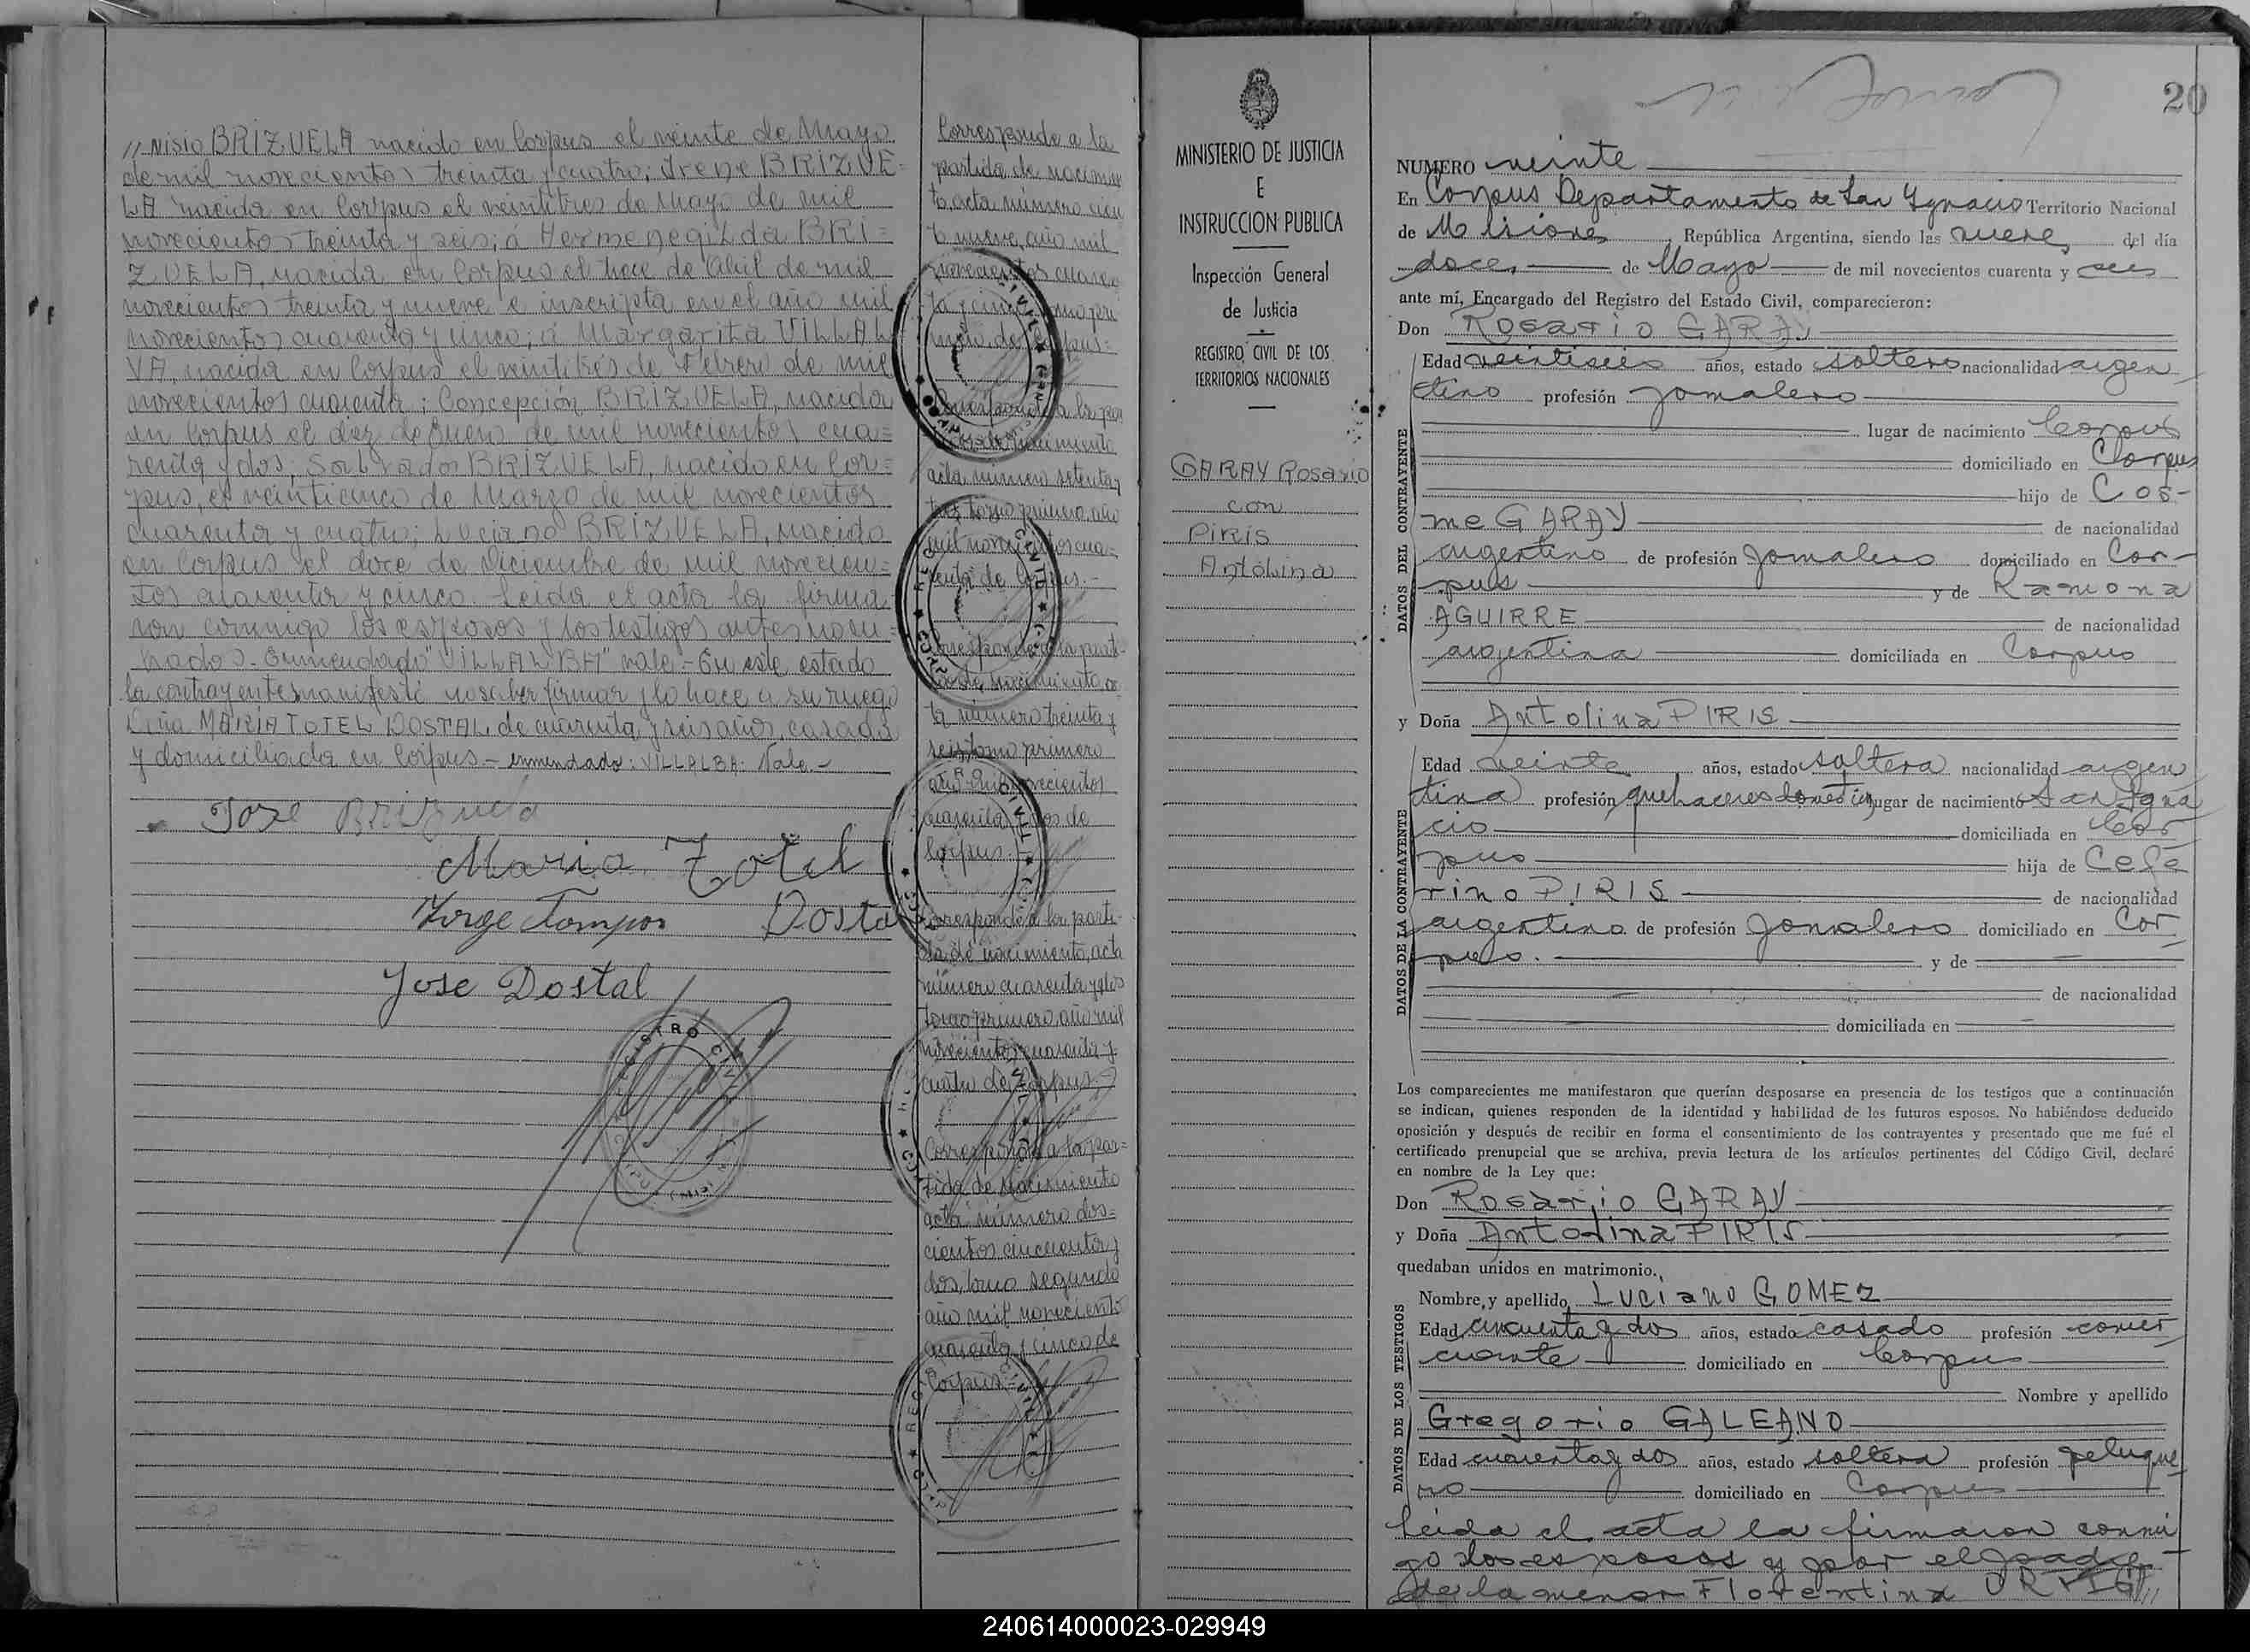 // nisio BRIZUELA nacido en Corpus el veinte de Mayo
de mil novecientos treinta y cuatro; Irene BRIZUE=
LA nacida en Corpus el veintitres de Mayo de mil
novecientos treinta y seis; á Hermenegilda BRI=
ZUELA, nacida en Corpus el trece de Abril de mil
novecientos treinta y nueve e inscripta en el año mil
novecientos cuarenta y cinco; á Margarita VILLAL
VA, nacida en Corpus el veintitrés de Febrero de mil
novecientos cuarenta; Concepción BRIZUELA, nacida
en Corpus el diez de Enero de mil novecientos cua=
renta y dos, Salvador BRIZUELA, nacido en Cor=
pus, el veinticinco de Marzo de mil novecientos
cuarenta y cuatro; Luciano BRIZUELA, nacido
en Corpus el doce de Diciembre de mil novecien=
tos cuarenta y cinco. Leída el acta la firma
ron conmigo los esposos y los testigos antes nom=
brados.- Enmendado "VILLALBA" vale.- En este estado
la contrayente manifestó no saber firmar y lo hace a su ruego
Doña MARIA TOTEL DOSTAL, de cuarenta y seis años, casada
y domiciliada en Corpus.- enmendado: VILLALBA: Vale.-
Jose Brizuela
Maria Totel
Jorge Dostal
Jose Dostal
Corresponde a la
partida de nacimien
to, acta número cien
to nueve, año mil
novecientos cuaren
ta y cinco
Corpus=
acta número setenta y
tres tomo primero, año
mil novecientos cua=
renta de Corpus.-
Corresponde a la parti-
da de nacimiento, ac
ta número treinta y
seis, tomo primero
año mil novecientos
cuarenta y dos de
Corpus.-
Corresponde a la parti-
da de nacimiento, acta
número cuarenta y dos
tomo primero, año mil
novecientos cuarenta y
cuatro de Corpus.-
Corresponde a la par=
tida de nacimiento
acta número dos=
cientos cincuenta y
dos, tomo segundo
año mil noveciento
cuarenta y cinco de
Corpus.=
MINISTERIO DE JUSTICIA
E
INSTRUCCION PUBLICA
Inspección General
de Justicia
REGISTRO CIVIL DE LOS
TERRITORIOS NACIONALES
GARAY Rosario
con
PIRIS
Antolina
20
NUMERO veinte
En Corpus Departamento de San Ygnacio Territorio Nacional
de Misiones, República Argentina, siendo las nueve del día
doce, de Mayo de mil novecientos cuarenta y seis
ante mí, Encargado del Registro del Estado Civil, comparecieron:
Don Rosario GARAY
Edad veintiseis años, estado soltero nacionalidad argen
tino profesión Jornalero
lugar de nacimiento Corpus
domiciliado en Corpus
hijo de Cos-
me GARAY de nacionalidad
argentino de profesión Jornalero domiciliado en Cor-
pus y de Ramona
AGUIRRE de nacionalidad
argentina domiciliada en Corpus
y Doña Antolina PIRIS
Edad veinte años, estado soltera nacionalidad argen
tina profesión quehaceres domesticos lugar de nacimiento San Igna
cio domiciliada en Cor
pus hija de Cefe
rino PIRIS de nacionalidad
argentino de profesión Jornalero domiciliado en Cor
pus. y de
de nacionalidad
domiciliada en
Los comparecientes me manifestaron que querían desposarse en presencia de los testigos que a continuación
se indican, quienes responden de la identidad y habilidad de los futuros esposos. No habiéndose deducido
oposición y después de recibir en forma el consentimiento de los contrayentes y presentado que me fué el
certificado prenupcial que se archiva, previa lectura de los artículos pertinentes del Código Civil, declaré
en nombre de la Ley que:
Don Rosario GARAY
y Doña Antolina PIRIS
quedaban unidos en matrimonio.
Nombre y apellido Luciano GOMEZ
Edad cincuenta y dos años, estado casado profesión comer
ciante domiciliado en Corpus
Nombre y apellido
Gregorio GALEANO
Edad cuarenta y dos años, estado soltero profesión peluque
ro domiciliado en Corpus
Leida el acta la firmaron conmi
go los esposos y por el padre
de la menor Florentina ORTIG//
DATOS DEL CONTRAYENTE
DATOS DE LA CONTRAYENTE
DATOS DE LOS TESTIGOS
240614000023-029949